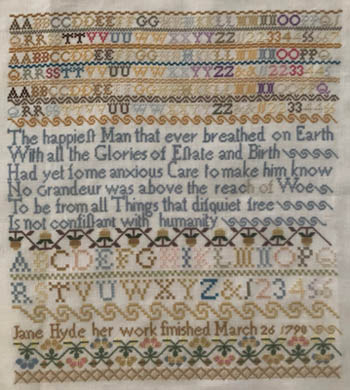 AABBCCDDEE GG IIOOPPQ
QRRSSTTVVUUWWXXYYZZ 23345
AABBCCDDEE GG IIOOPPQ
QRRSSTTVVUUWWXXYYZZ 223345
AABBCCDDEE II Q
QRRSS UU WW ZZ 33
The happieſt Man that ever breathed on Earth
With all the Glories of Eſtate and Birth
Had yet ſome anxious Care to make him know
No Grandeur was above the reach of Woe
To be from all Things that diſquiet free
Is not conſiſtant with humanity
ABCDEFGHIKLMNOPQ
RSTVUWXYZ&123456
Jane Hyde her work finiſhed March 26 1790